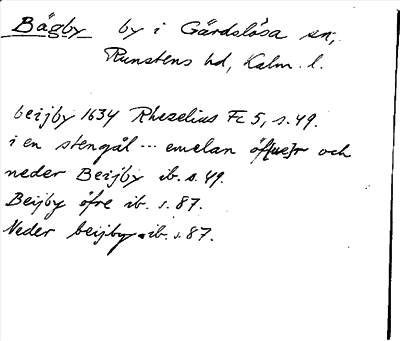 Bägby by i Gärdslösa sn,
Runstens hd, Kalm. l.
beijby 1634 Rhezelius Fc 5, s. 49.
i en stengål... emelan öf[ue]r och
neder Beijby ib. s. 49.
Beijby öfre ib. s. 87.
Neder beijby ib. s. 87.